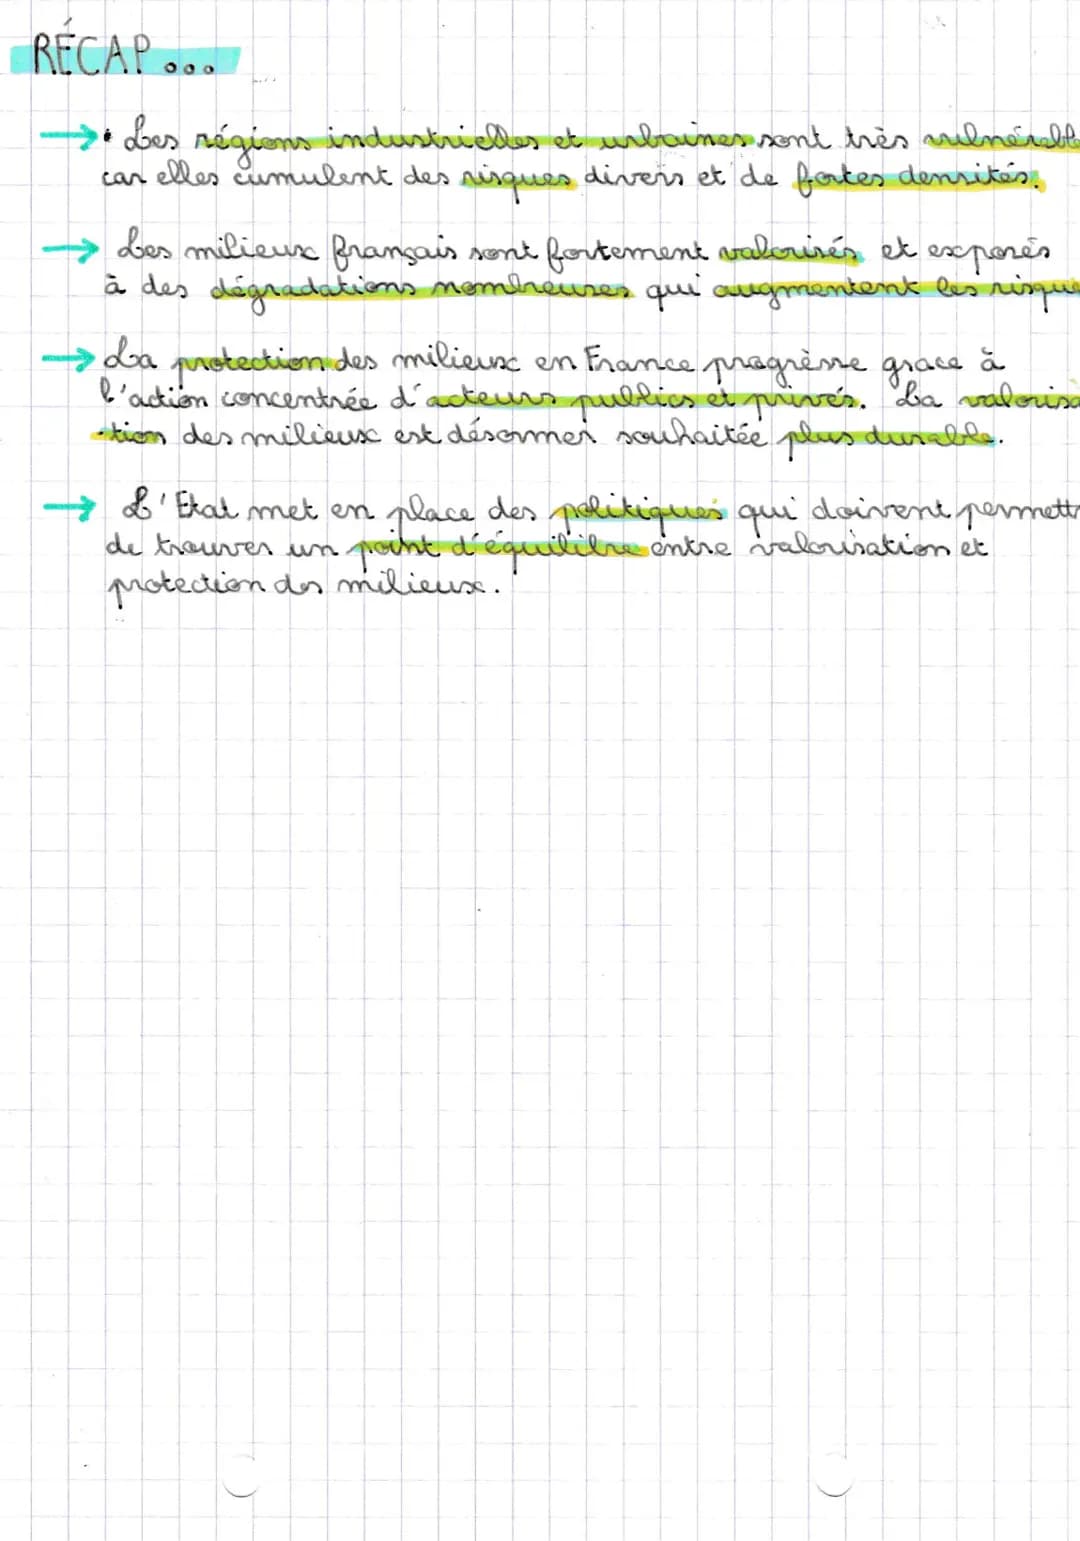 RÉCAP...
→• Les régions industrielles et urbaines sont très vulnérable
car elles cumulent des risques divers et de fortes densités.
→ Les milieux français sont fortement valorisés et exposés
à des dégradations nombreuses qui augmentent les risque
→ La protection des milieux en France progrèsse grace à
l'action concentrée d'acteurs publics et privés. La valorisa
-tion des milieux est désormer souhaitée plus durable.
→ L'Etat met en place des politiques qui doivent permettr
de trouver un point d'équilibre entre valorisation et
protection des milieux.